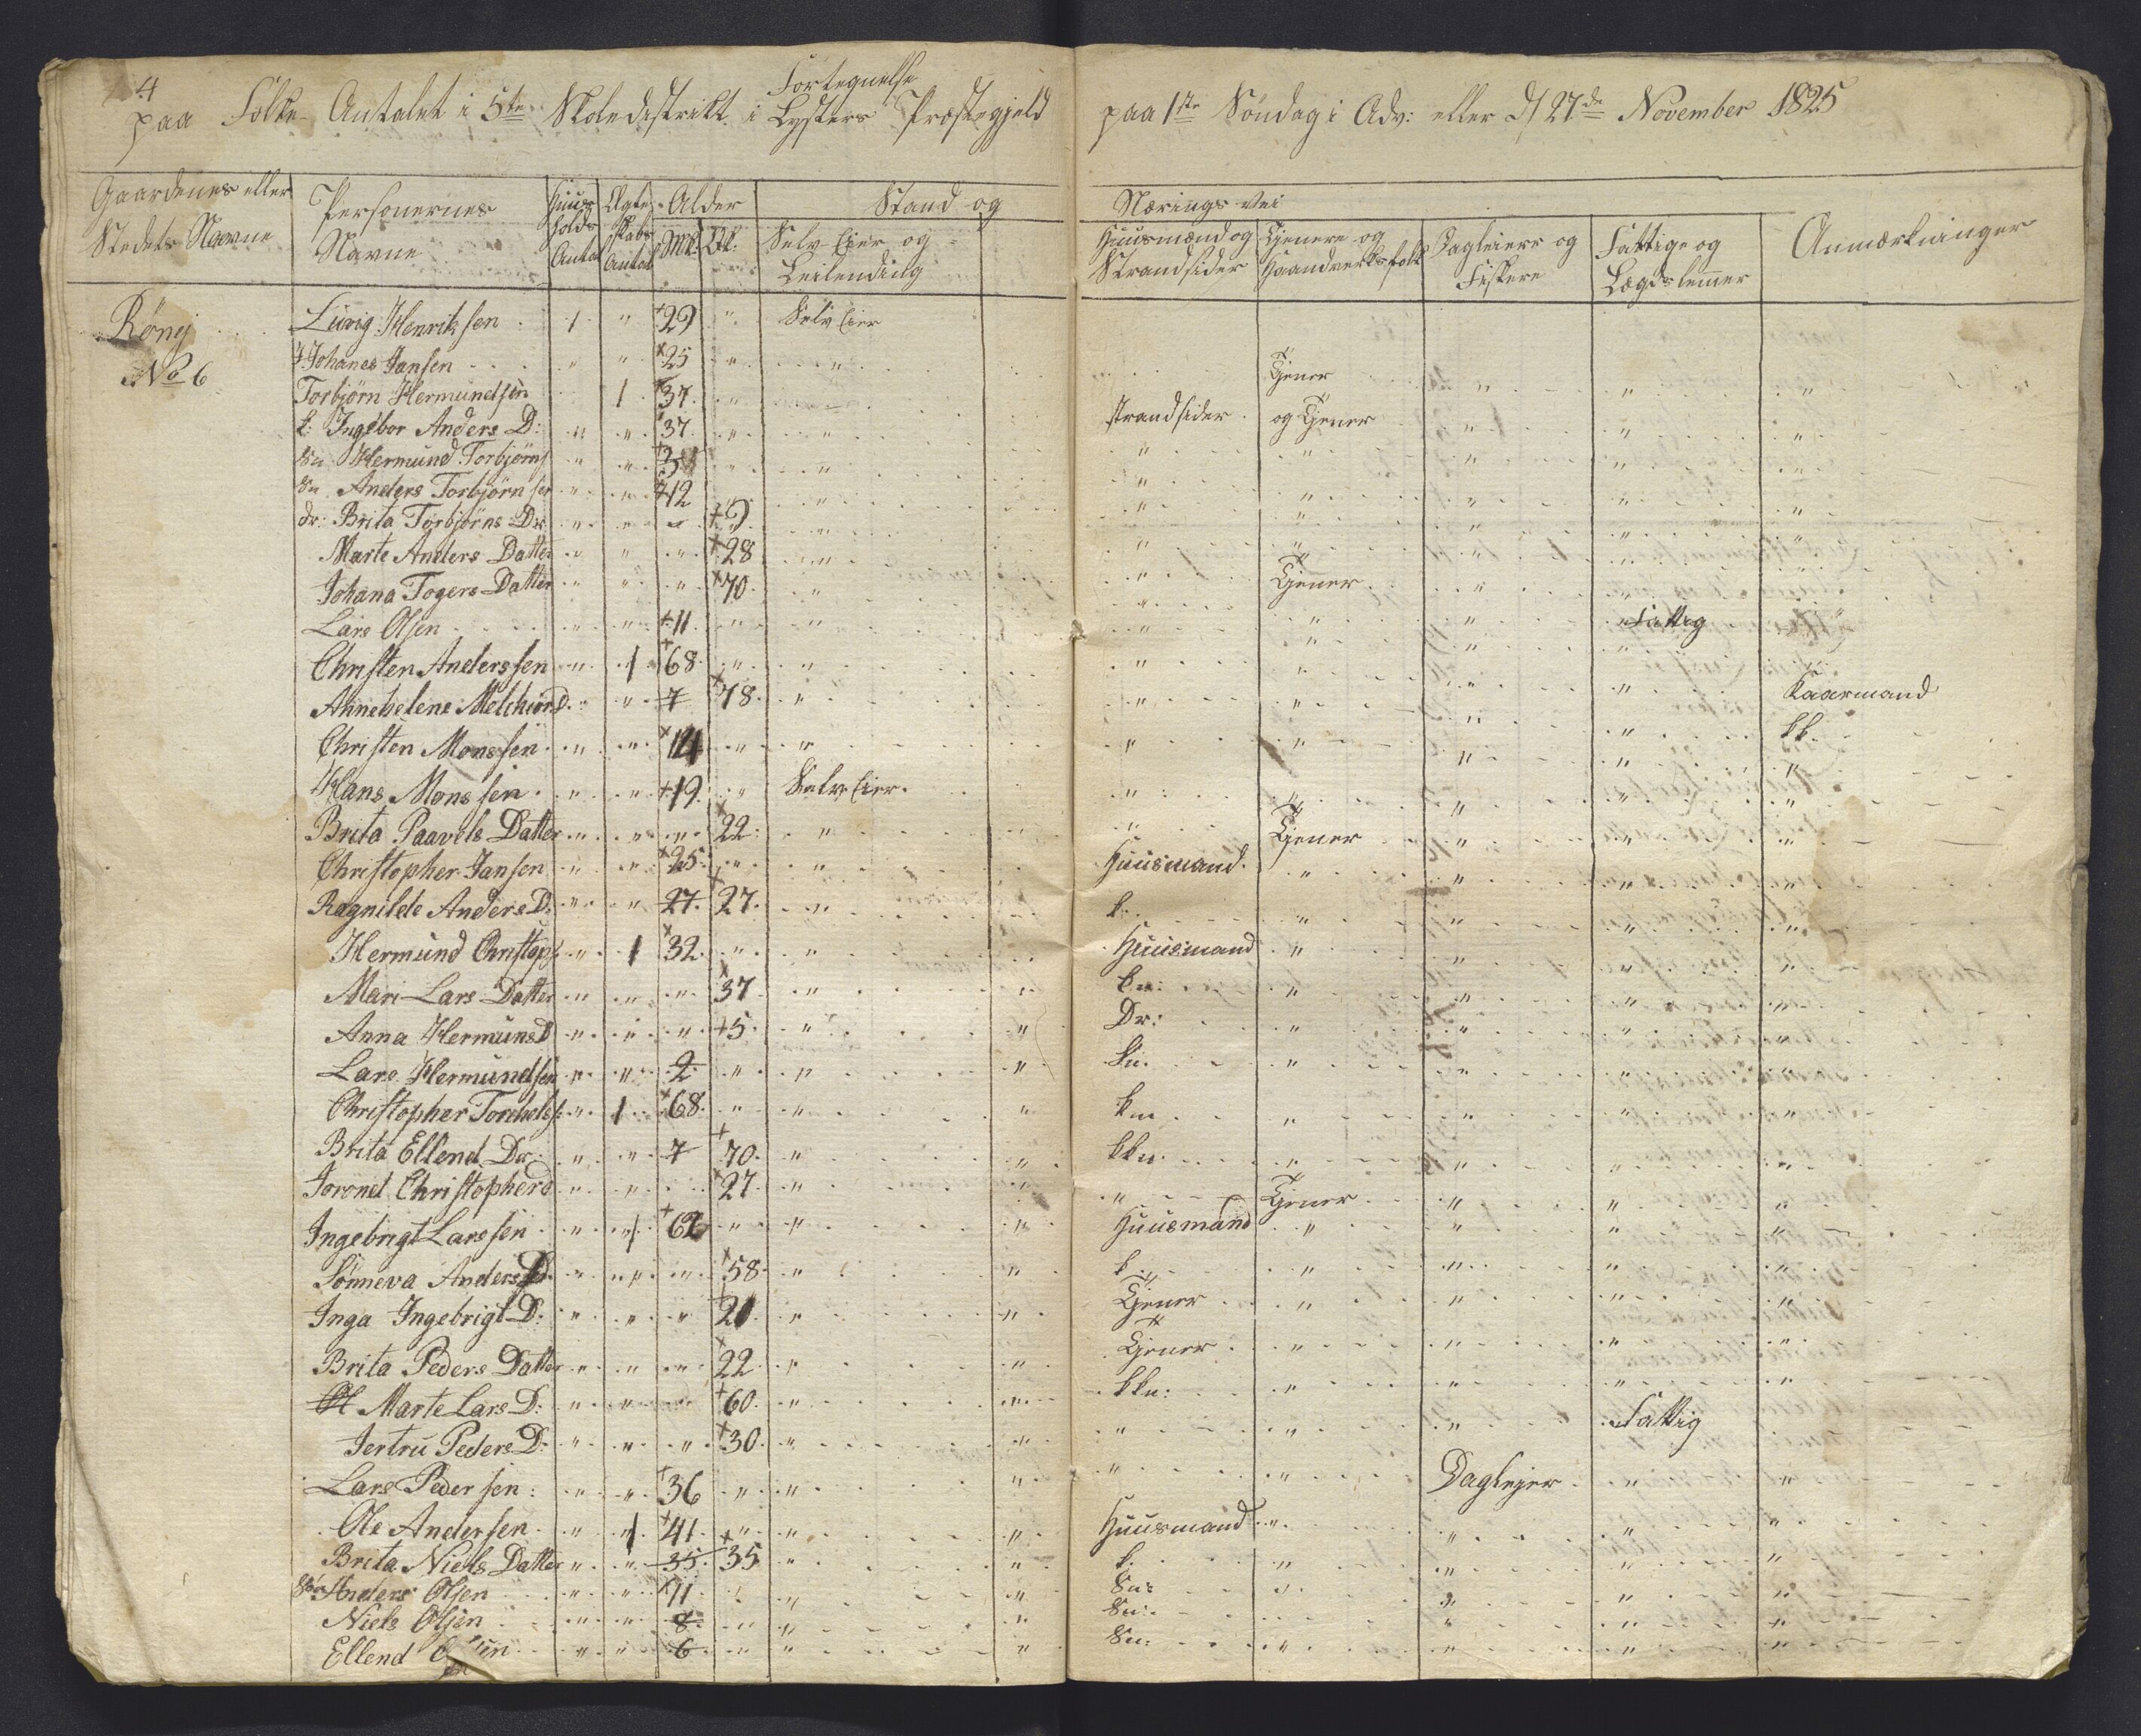 4
Fortegnelse
paa Folke-Antalet i 5te Skoledistrikt i Lysters Præstegjeld paa 1ste Søndag i Adv: eller d/ 27de November 1825
Gaardenes eller Stedets Navne | Personernes Navne | Huus holds Antal | Ægte skabs Antal | Alder | Mk. | Qk. | Stand og Nærings Vei | Selv Eier og Leilending | Huusmænd og Strandsider | Tjenere og Haandverksfolk | Dagleiere og Fiskere | Fattige og Lægdslemmer | Anmærkninger
Rønej Livrig Henriksen 1 " 29 " Selv Eier
No 6 Johanes Jansen " " 25 " " Tjener " " "
Torbjörn Hermundsen 1 37 " strandsider og Tjener " " "
k: Ingebor Anders D: " " 37 " " " " " " "
Sn Hermund Torbjörns " " 3 " " " " " "
Sn Anders Torbjörnsen " " 12 " " " " " "
dr: Brita Torbjörns Dr " " " 9 " " " " " "
Marte Anders Datter " " " 28 " " Tjener " " "
Johana Togers Datter " " " 70 " " " " Fattig "
Lars Olsen " " 11 " " " " " "
Christen Anderssen " 1 68 " " " " " " Kaarmand
Annehelene Melchiord. " " 7 78 " " " " " kk.
Christen Monssen " " 14 " " " " " " "
Hans Monssen " " 19 " Selv Eier " " " " "
Brita Paavels Datter " " " 22 " " Tjener " " "
Christopher Jansen " " 25 " " Huusmand " " " "
Ragnilde Anders D. " " 27 27 " k. " " " "
Hermund Christop " 1 32 " " Huusmand " " " "
Mari Lars Datter " " " 37 " kn: " " " "
Anna Hermuns D " " " 5 " " Dr: " " " "
Lars Hermundsen " " 2 " " " " " " "
Christopher Torchels " 1 68 " " " " " " "
Brita Ellend Dr: " " 7 70 " " kkn. " " " "
Joronel Christopherd " " 27 " " " Tjener " " "
Ingebrigt Larssen " 1 62 " " " Huusmand " " " "
Sönneva Anders D. " " " 58 " " k. " " " "
Inga Ingebrigt D: " " " 20 " " Tjener " " " "
Brita Peders Datter " " " 22 " " Tjener " " " "
Marte Lars D: " " 60 " " kkn: " " " "
Jertru Peders D: " " " 30 " " " " " Fattig
Lars Pedersen: " " 36 " " " " " Daglejer " "
Ole Andersen " 1 41 " " " Huusmand " " " "
Brita Niels Datter " " 35 35 " " k. " " " "
Anders Olsen " " 11 " " Sn: " " " "
Niels Olsen " " 8 " " " Sn: " " "
Ellend " " 6 " " " Sn: " " " "